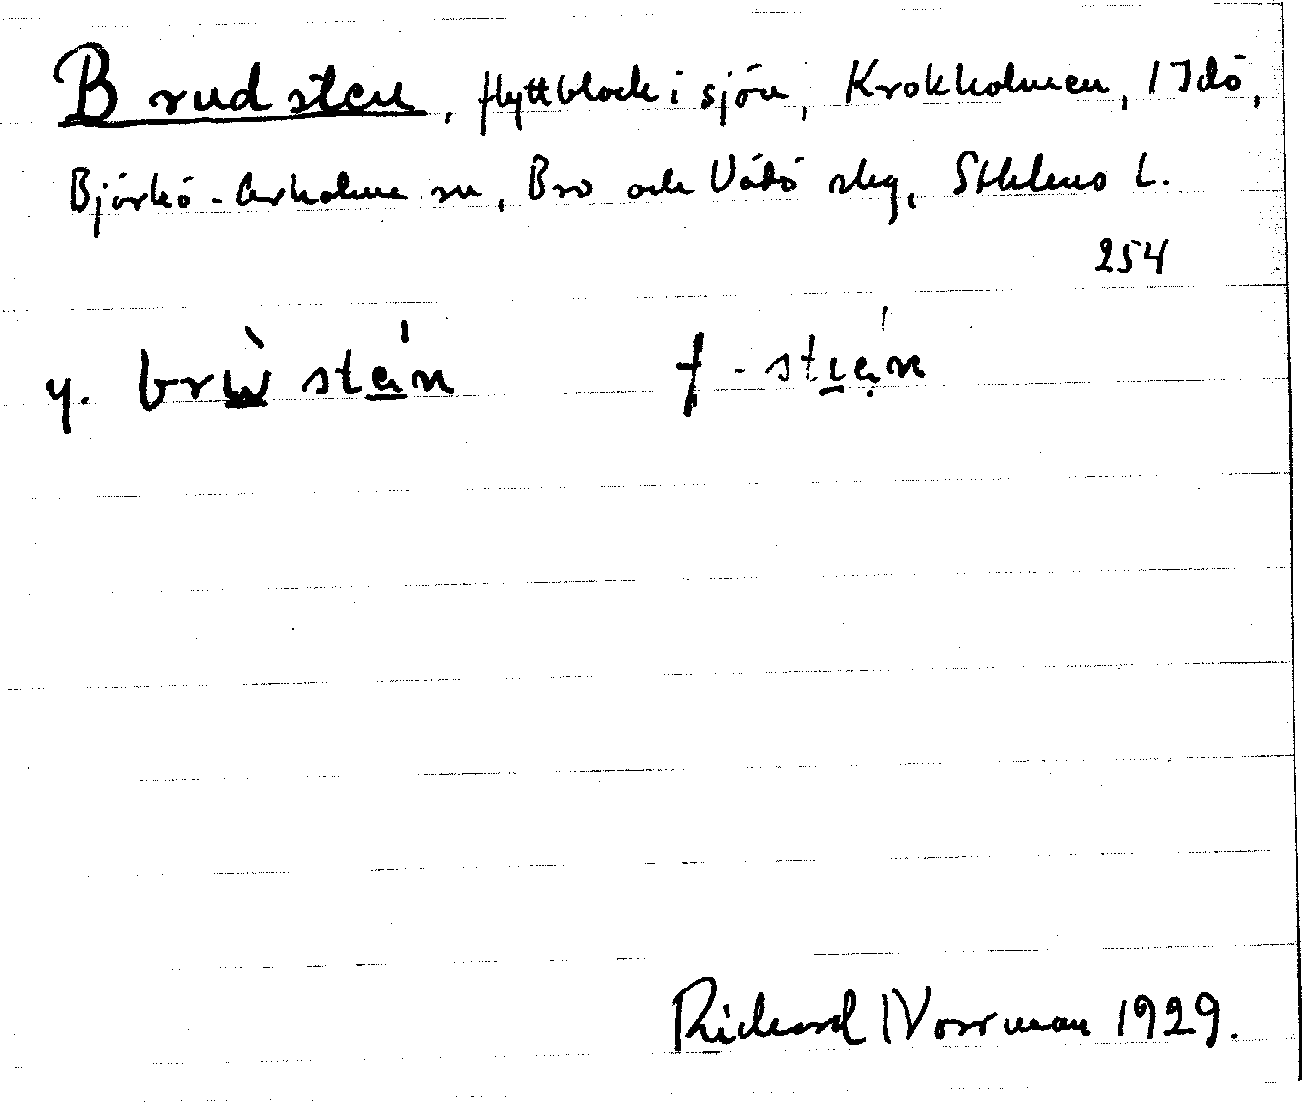 Brudsten, flyttblock i sjön, Krokholmen, 1 Idö,
Björkö-Arholma sn, Bro och Vädö skg, Sthlms L.
254
y. brẁ stán f - stn
Richard Norrman 1929.